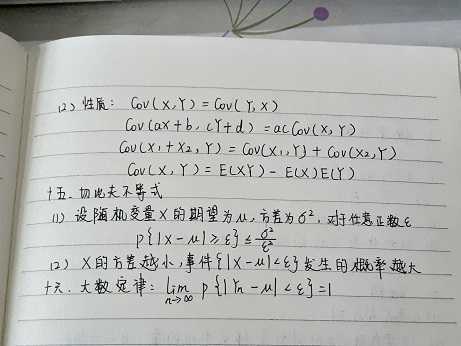 (2) 性质: Cov(X,Y) = Cov(Y,X)
Cov(aX+b, cY+d) = acCov(X,Y)
Cov(X₁+X₂,Y) = Cov(X₁,Y) + Cov(X₂,Y)
Cov(X,Y) = E(XY) - E(X)E(Y)
十五. 切比夫不等式
(1) 设随机变量X的期望为μ, 方差为σ², 对于任意正数ε
P{|X-μ|≥ε} ≤ σ²/ε²
(2) X的方差越小, 事件{|X-μ|<ε}发生的概率越大
十六. 大数定律: lim n→∞ P{|Yn-μ|<ε}=1